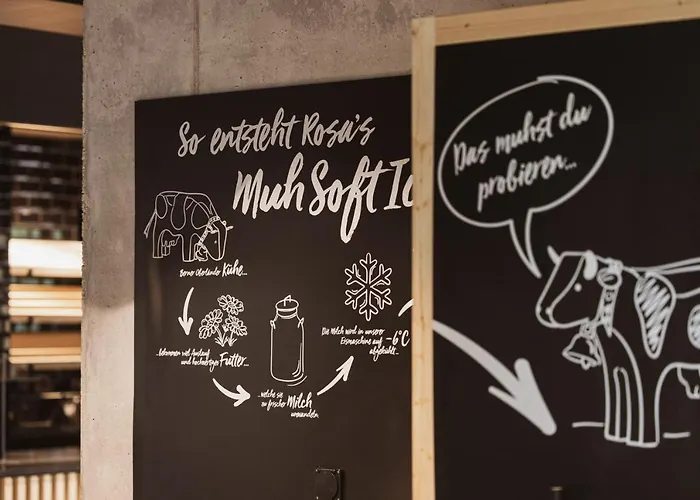 So entsteht Rosa's
Muh Soft Ic
Das muhst du
probieren...
Berner Oberländer Kühe...
...bekommen viel Auslauf
und hochwertiges Futter...
...welche sie
zu frischer Milch
umwandeln
Die Milch wird in unserer
Eismaschine auf -6°C
abgekühlt...